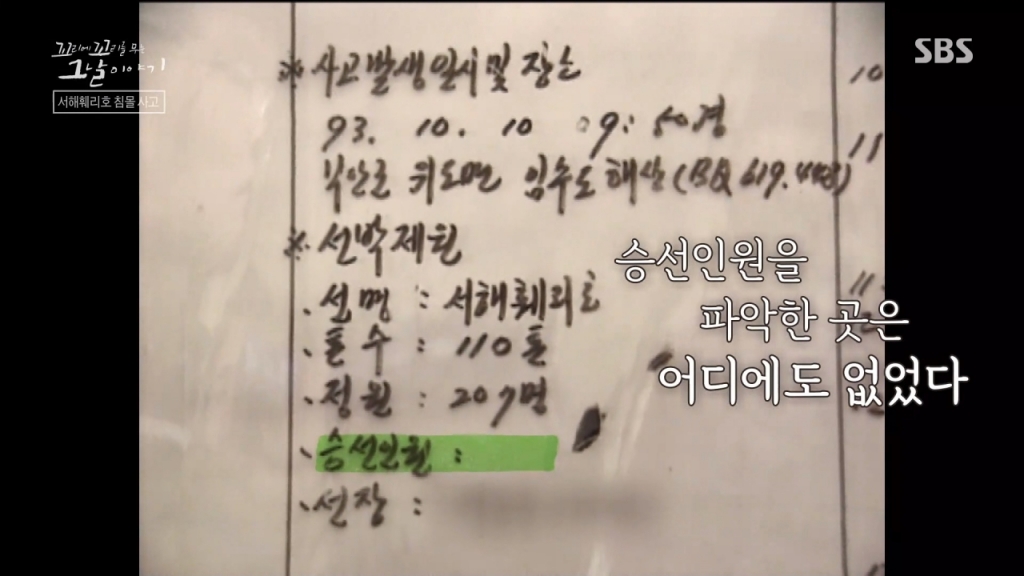 꼬리에 꼬리를 무는
그날 이야기
서해훼리호 침몰 사고
SBS
※ 사고발생일시 및 장소
93. 10. 10 09:50경
부안군 위도면 임수도 해상 (BQ 619.448)
※ 선박제원
. 선명 : 서해훼리호
. 톤수 : 110톤
. 정원 : 207명
. 승선인원 :
. 선장 :
10
11
11
승선인원을
파악한 곳은
어디에도 없었다